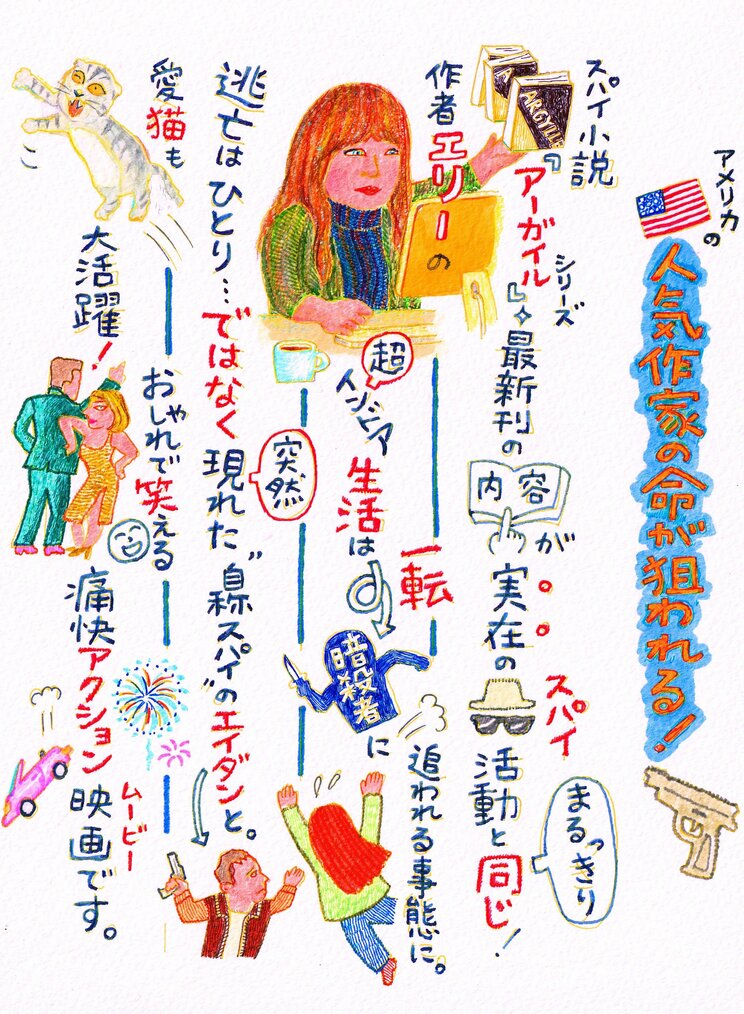 アメリカの
人気作家の命が狙われる！
スパイ小説
ARGYLLE
『アーガイル』シリーズ
最新刊の
内容が
実在の
スパイ
活動と
まるっきり
同じ！
作者エリーの
超
インドア
生活は
一転
暗殺者に
追われる事態に。
逃亡はひとり…ではなく
突然
現れた
“自称スパイ”のエイダンと。
愛猫も
大活躍！
おしゃれで笑える
痛快アクション
ムービー
映画です。